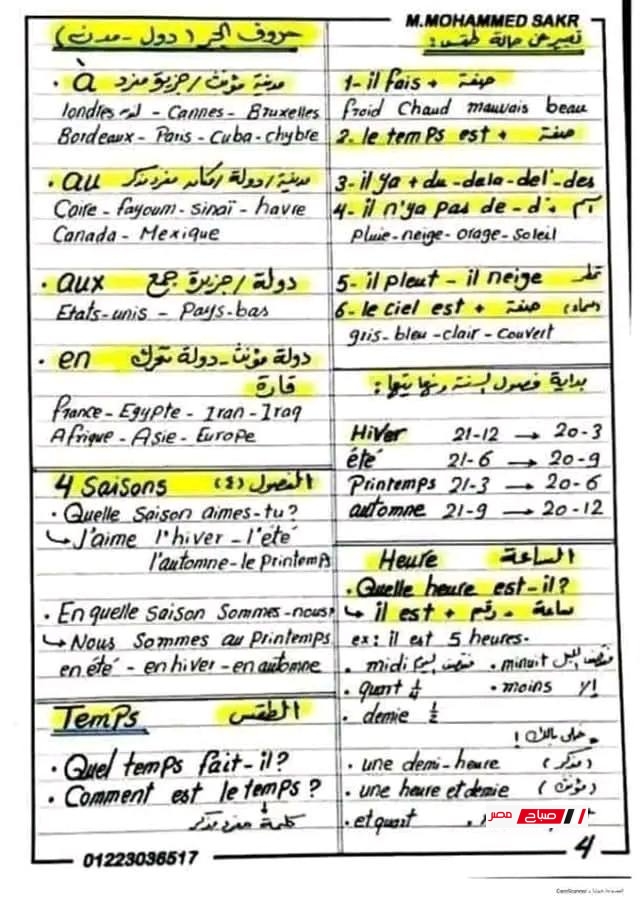 M.MOHAMMED SAKR
حروف الجر (دول - مدن)
• à مدينة مؤنث / جزيرة مفرد
londres لندن - Cannes - Bruxelles
Bordeaux - Paris - Cuba - chybre
• au مدينة / دولة / مكان مفرد مذكر
Caire - fayoum - sinaï - havre
Canada - Mexique
• aux دولة / جزيرة جمع
Etats-unis - Pays-bas
• en دولة مؤنث - دولة متحرك
قارة
france - Egypte - Iran - Iraq
Afrique - Asie - Europe
4 Saisons الفصول (٤)
• Quelle saison aimes-tu?
↳ J'aime l'hiver - l'été
l'automne - le printemps
• En quelle saison sommes-nous?
↳ Nous sommes au printemps
en été - en hiver - en automne
Temps الطقس
• Quel temps fait-il?
• Comment est le temps?
كلمة مفرد مذكر
تعبير عن حالة طقس:
1- il fais + صفة
froid chaud mauvais beau
2. le temps est + صفة
3- il ya + du - dela - del' - des
4- il n'ya pas de - d' + اسم
pluie - neige - orage - soleil
5- il pleut - il neige تمطر
6- le ciel est + صفة (سماء)
gris - bleu - clair - couvert
بداية فصول السنة ونهايتها:
Hiver 21-12 → 20-3
été 21-6 → 20-9
Printemps 21-3 → 20-6
automne 21-9 → 20-12
Heure الساعة
• Quelle heure est-il?
↳ il est + رقم - ساعة
ex: il est 5 heures.
• midi منتصف اليوم • minuit منتصف الليل
• quart ¼ • moins إلا
• demie ½
خلى بالك!
• une demi-heure (مذكر)
• une heure et demie (مؤنث)
• et quart
صباح مصر
01223036517
4
CamScanner